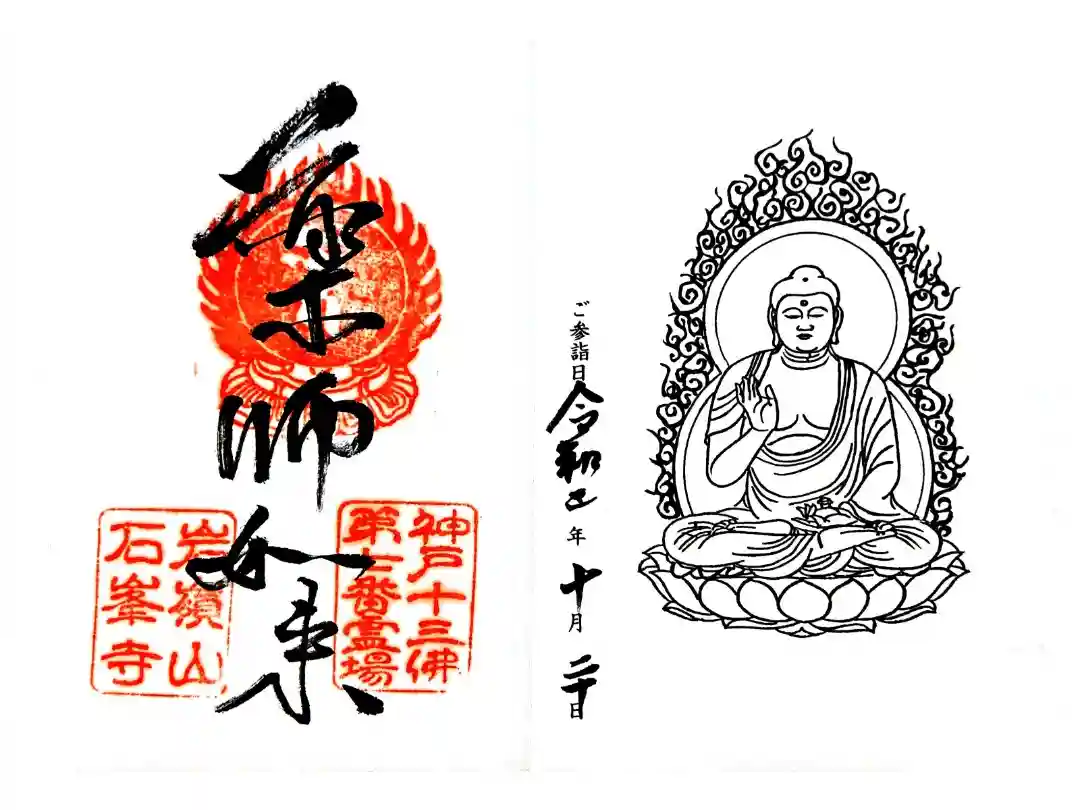 ご参詣日 令和五年 十月 二十日
神戸十三佛
第七番霊場
薬師如来
岩嶺山
石峯寺